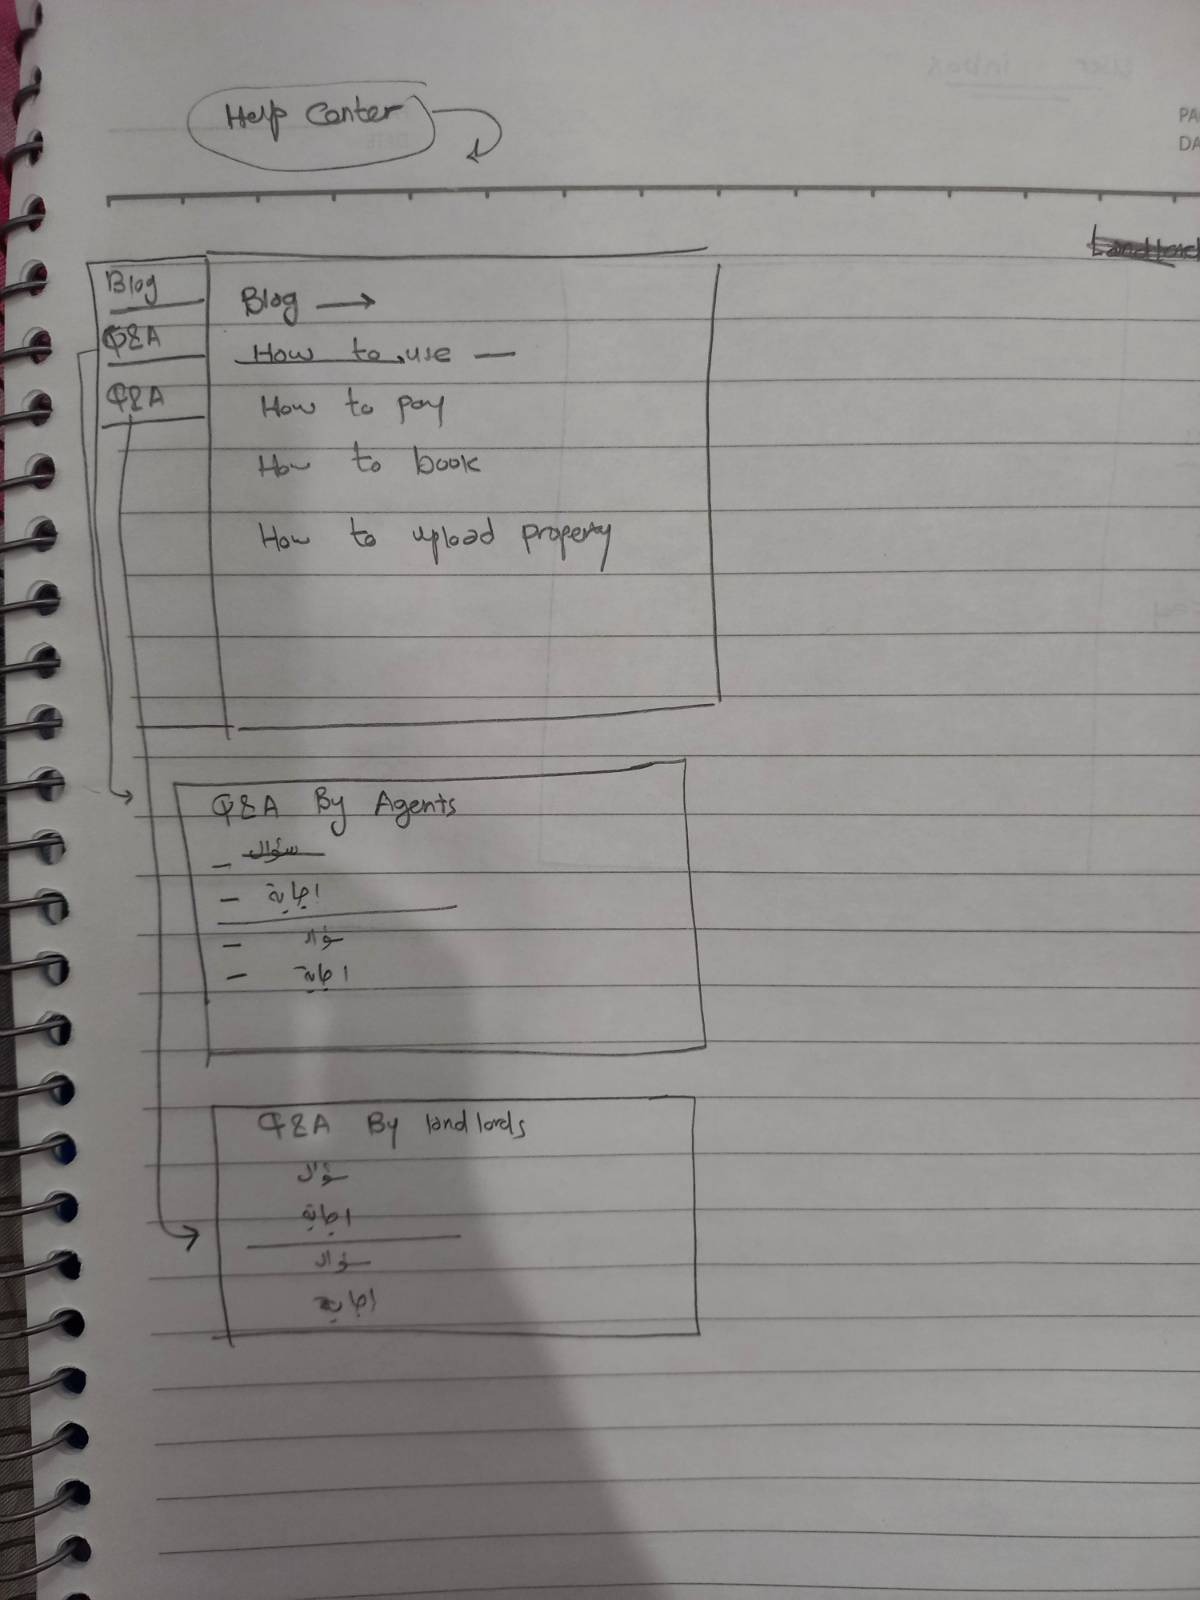 Help Center
Blog
Q&A
Q&A
Blog →
How to use —
How to pay
How to book
How to upload property
Q&A By Agents
– سؤال
– اجابة
– سؤال
– اجابة
Q&A By landlords
سؤال
اجابة
سؤال
اجابة
Landlord
PA
DA